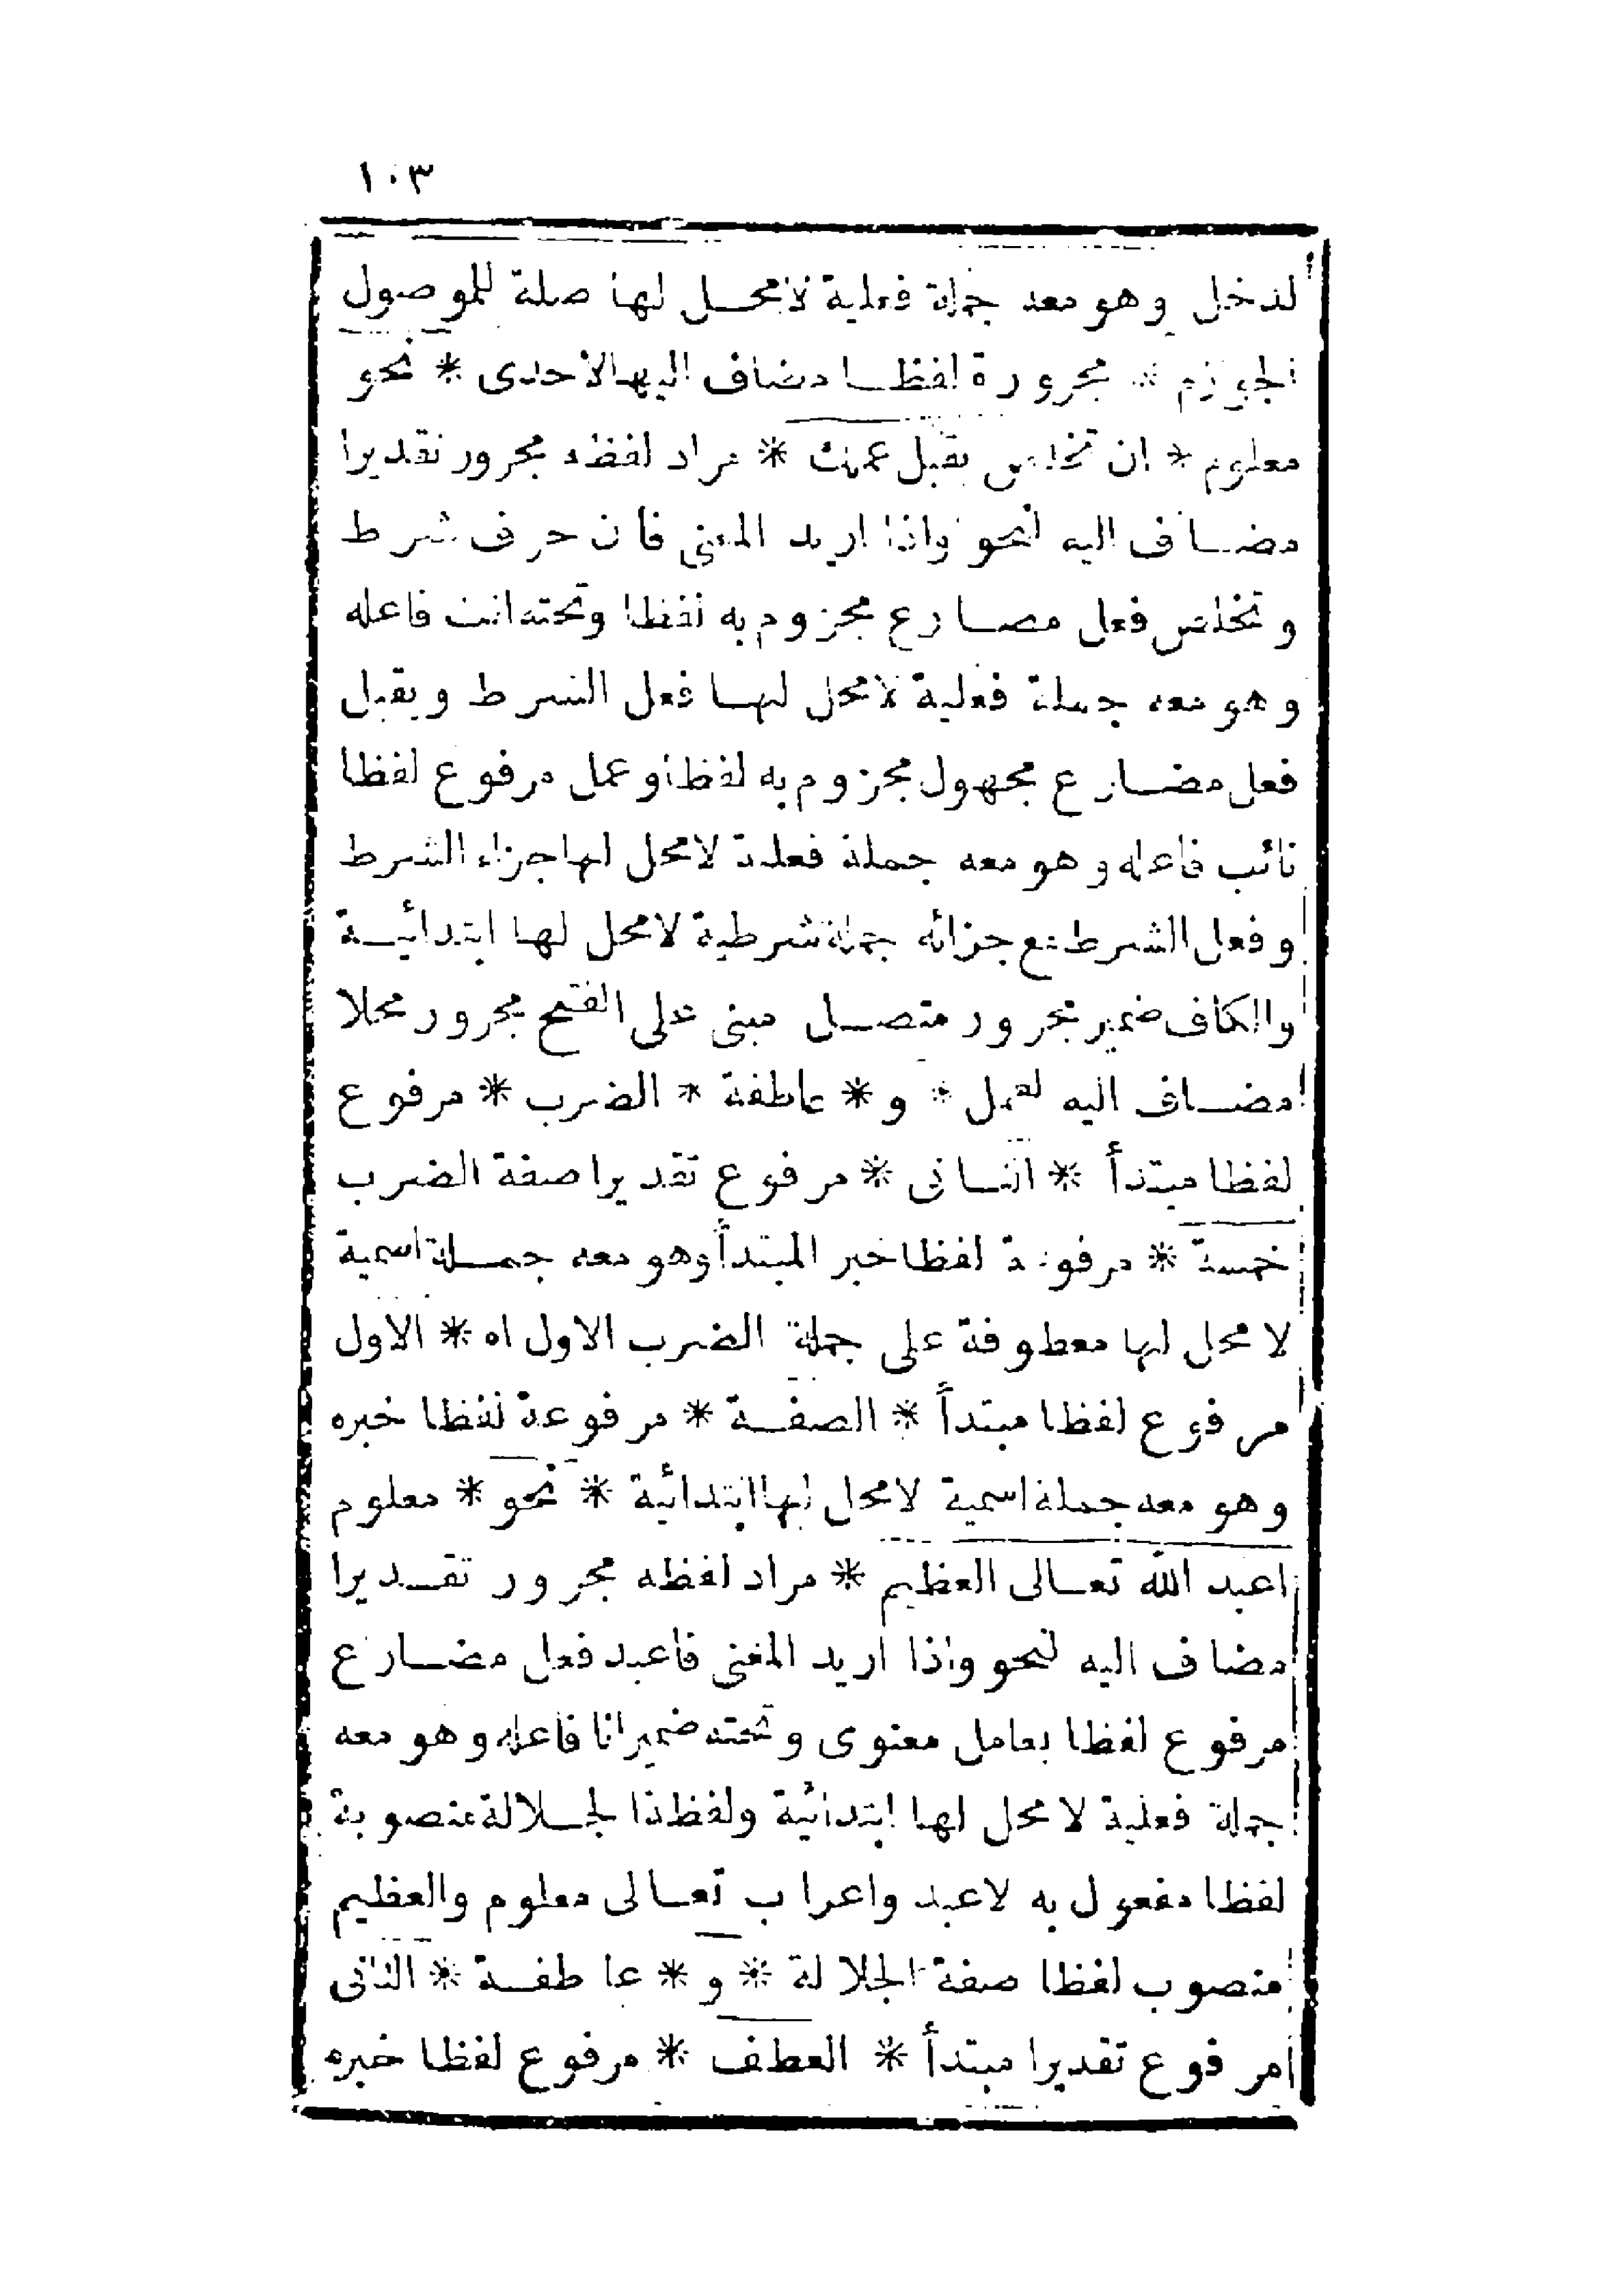 ١٠٣
لدخل وهو معه جملة فعلية لامحل لها صلة للموصول
الجوازم * مجرورة لفظا مضاف اليها لاحدى * نحو
معلوم * ان تخلص يقبل عملك * مراد لفظه مجرور تقديرا
مضاف اليه لنحو واذا اريد المعنى فان حرف شرط
وتخلص فعل مضارع مجزوم به لفظا وتحته انت فاعله
وهو معه جملة فعلية لامحل لها فعل الشرط ويقبل
فعل مضارع مجهول مجزوم به لفظا وعمل مرفوع لفظا
نائب فاعله وهو معه جملة فعلية لامحل لها جزاء الشرط
وفعل الشرط مع جزائه جملة شرطية لامحل لها ابتدائية
والكاف ضمير مجرور متصل مبنى على الفتح مجرور محلا
مضاف اليه لعمل * و * عاطفة * الضرب * مرفوع
لفظا مبتدأ * الثانى * مرفوع تقديرا صفة الضرب
خمسة * مرفوعة لفظا خبر المبتدأ وهو معه جملة اسمية
لا محل لها معطوفة على جملة الضرب الاول اه * الاول
مرفوع لفظا مبتدأ * الصفة * مرفوعة لفظا خبره
وهو معه جملة اسمية لامحل لها ابتدائية * نحو * معلوم
اعبد الله تعالى العظيم * مراد لفظه مجرور تقديرا
مضاف اليه لنحو واذا اريد المعنى فاعبد فعل مضارع
مرفوع لفظا بعامل معنوى وتحته ضمير انا فاعله وهو معه
جملة فعلية لامحل لها ابتدائية ولفظة الجلالة منصوبة
لفظا مفعول به لاعبد واعراب تعالى معلوم والعظيم
منصوب لفظا صفة الجلالة * و * عاطفة * الثانى
مرفوع تقديرا مبتدأ * العطف * مرفوع لفظا خبره